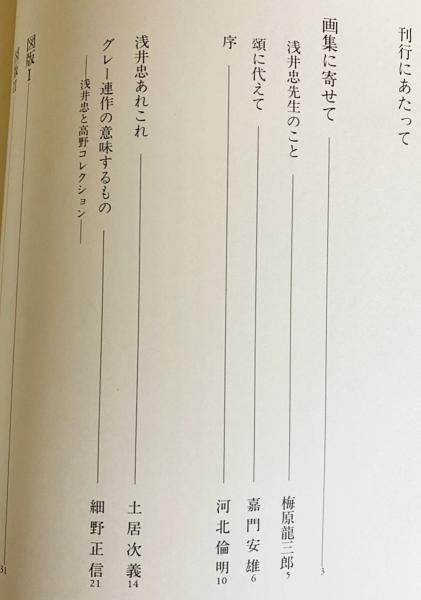 刊行にあたって
画集に寄せて 3
浅井忠先生のこと 梅原龍三郎 5
頌に代えて 嘉門安雄 6
序 河北倫明 10
浅井忠あれこれ 土居次義 14
グレー連作の意味するもの 細野正信 21
―浅井忠と高野コレクション―
図版I 31